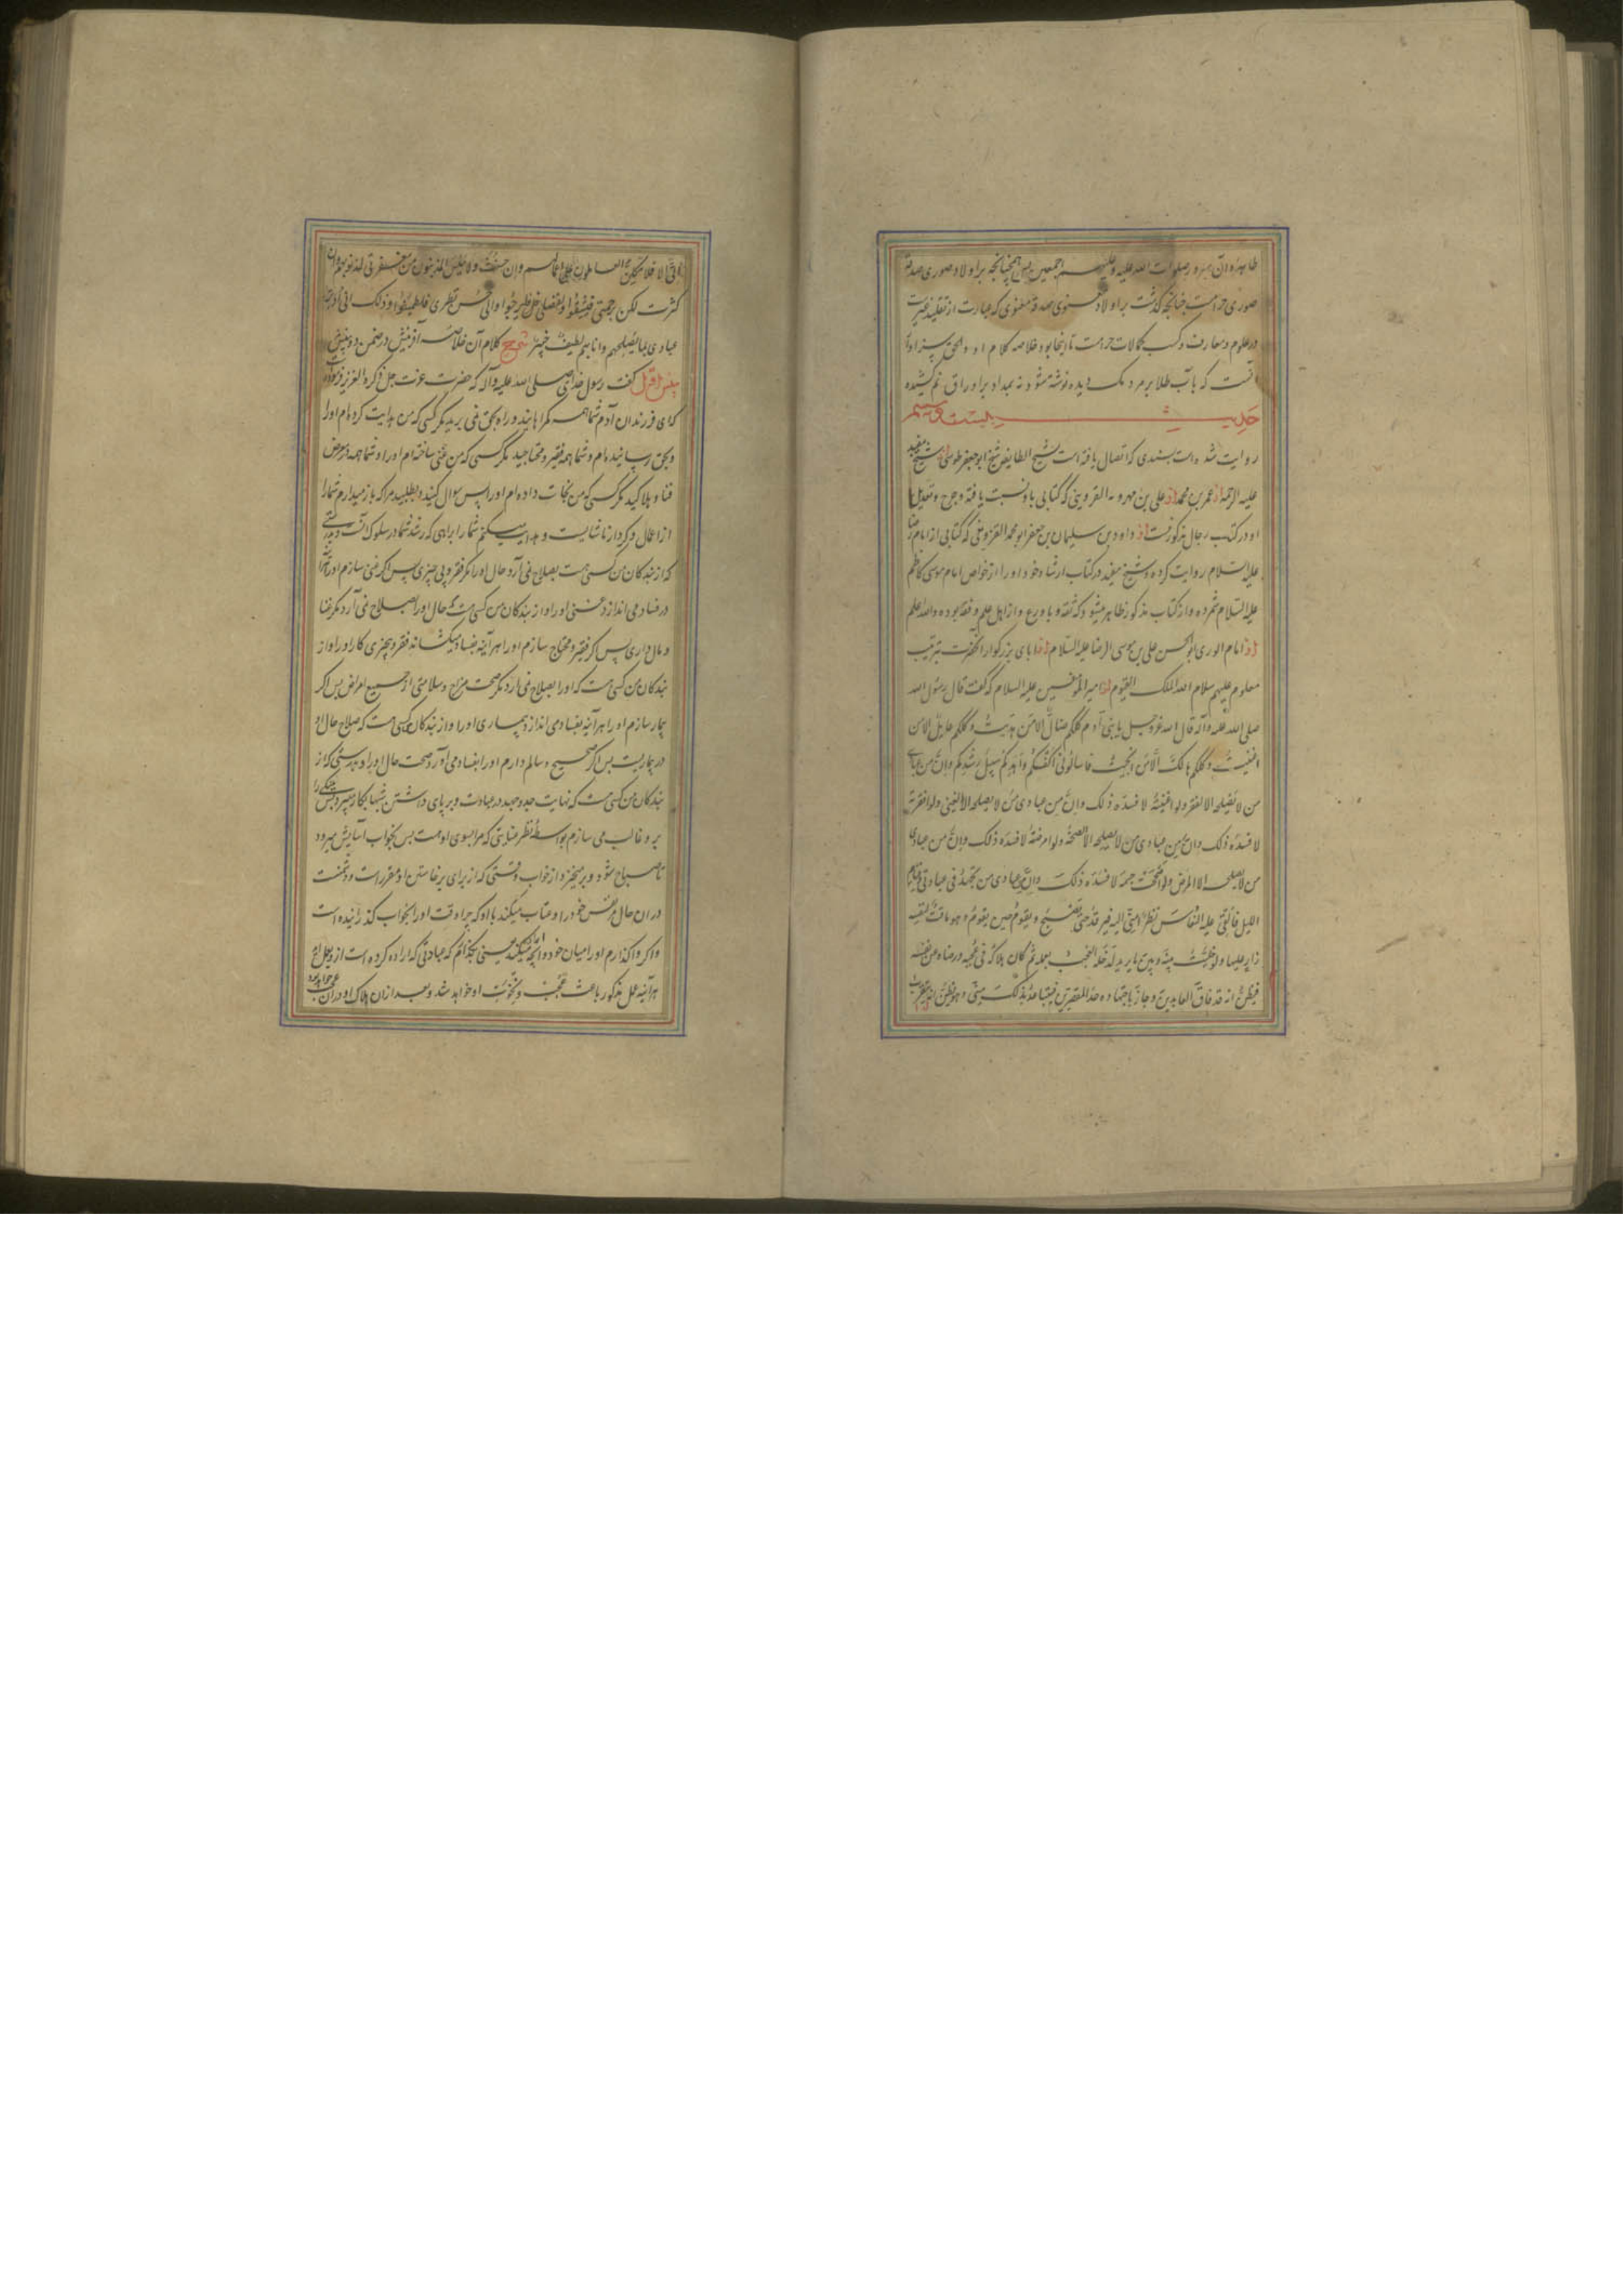 طاهره آن سرور صلوات الله علیه و علیهم اجمعین پس همچنانچه بر اولاد صوری صدقه
صوری حرامست چنانچه گذشت بر اولاد معنوی صدقه معنوی که عبارت از تقلید غیرست
در علوم و معارف و کسب کمالات حرامست تا اینجا بود خلاصه کلام او و الحق سزاوار
آنست که بآب طلا بر مردمک دیده نوشته شود نه بمداد بر اوراق
حدیث بیست و سیم
روایت شده است بسندی که اتصال یافته است بشیخ الطایفه شیخ ابو جعفر طوسی از شیخ مفید
علیه الرحمه از عمر بن محمد از علی بن مهرویه القزوینی که کتابی باو نسبت یافته و جرح و تعدیل
او در کتب رجال مذکور نیست از داود بن سلیمان بن جعفر ابو محمد القزوینی که کتابی از امام رضا
علیه السلام روایت کرده و شیخ مفید در کتاب ارشاد خود او را از خواص امام موسی کاظم
علیه السلام شمرده و از کتاب مذکور ظاهر میشود که ثقه و با ورع و از اهل علم و فقه بوده و الله اعلم
از امام الوری ابو الحسن علی بن موسی الرضا علیه السلام از ابای بزرگوار آنحضرت بترتیب
معلوم علیهم سلام الله الملک القیوم از امیر المؤمنین علیه السلام که گفت قال رسول الله
صلی الله علیه و آله قال الله عز و جل یا بنی آدم کلکم ضال الا من هدیت و کلکم عایل الا من
اغنیت و کلکم هالک الا من انجیت فاسألونی اکفکم و اهدکم سبیل رشدکم و ان من عبادی
من لا یصلحه الا الفقر ولو اغنیته لافسده ذلک و ان من عبادی من لا یصلحه الا الغنی ولو افقرته
لافسده ذلک و ان من عبادی من لا یصلحه الا الصحة ولو امرضته لافسده ذلک و ان من عبادی
من لا یصلحه الا المرض ولو اصححت جسمه لافسده ذلک و ان من عبادی من یجتهد فی عبادتی و قیام
اللیل فألقی علیه النعاس نظرا منی الیه فیرقد حتی یصبح و یقوم حین یقوم و هو ماقت لنفسه
زار علیها ولو خلیت بینه و بین ما یرید لدخله العجب بعمله ثم کان هلاکه فی عجبه و رضاه عن نفسه
فیظن انه قد فاق العابدین و جاز باجتهاده حد المقصرین فیتباعد بذلک منی و هو یظن انه یتقرب
الی الا فلا یتکلن العاملون علی اعمالهم و ان حسنت و لا ییأس المذنبون من مغفرتی لذنوبهم و ان
کثرت لکن برحمتی فلیثقوا و لفضلی فلیرجوا و الی حسن نظری فلیطمئنوا و ذلک انی ادبر
عبادی بما یصلحهم و انا بهم لطیف خبیر شرح کلام آن خلاصه آفرینش در ضمن دو بینش
بینش اول گفت رسول خدا صلی الله علیه و آله که حضرت عزت جل ذکره العزیز فرموده
که ای فرزندان آدم شما همه گمراهانید و راه بحق نمی برید مگر کسی که من هدایت کرده ام او را
و بحق رسانیده ام و شما همه فقیر و محتاجید مگر کسی که من غنی ساخته ام او را و شما همه در معرض
فنا و هلاکید مگر کسی که من نجات داده ام او را پس سوال کنید و بطلبید مرا که باز میدارم شما را
از اعمال و کردار ناشایست و هدایت میکنم شما را براهی که رشد شما در سلوک آنست و بدرستی
که از بندکان من کسی هست بصلاح نمی آرد حال او را مگر فقر و بی چیزی پس اگر غنی سازم او را هر آینه
در فساد می اندازد غنی او را و از بندکان من کسی هست که حال او را بصلاح نمی آرد مگر غنا
و مال داری پس اگر فقیر و محتاج سازم او را هر آینه بفساد میکشاند فقر و بیچیزی کار او را و از
بندکان من کسی هست که او را بصلاح نمی آرد مگر صحت مزاج و سلامتی از جمیع امراض پس اگر
بیمار سازم او را هر آینه بفساد می اندازد بیماری او را و از بندکان من کسی هست که صلاح حال او
در بیماریست پس اگر صحیح و سالم دارم او را بفساد می آورد صحت حال او را و بدرستی که از
بندکان من کسی هست که نهایت جد و جهد در عبادت و بر پای داشتن شبها بکار میبرد پس
برو غالب می سازم بواسطه نظر عنایتی که مرا بسوی او هست پس بخواب آسایش میرود
تا صباح شود و بر میخیزد از خواب وقتی که از برای برخاستن او مقرر است و دشمنست
در ان حال مر نفس خود را و عتاب میکند با او که چرا وقت او را بخواب گذرانیده است
و اگر وا گذارم او را میان خود و انچه اراده میکند یعنی بگذارم که عبادتی که اراده کرده است ازو بعمل آید
هر آینه عمل مذکور باعث عجب و نخوت او خواهد شد و بعد از ان هلاک او در آن عجب خواهد بود